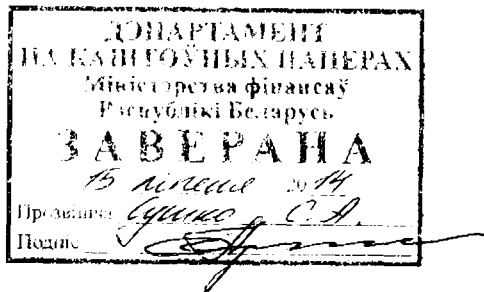 ДЭПАРТАМЕНТ
ПА КАШТОЎНЫХ ПАПЕРАХ
Міністэрства фінансаў
Рэспублікі Беларусь
ЗАВЕРАНА
15 ліпеня 2014
Прозвішча Сушко С.А.
Подпіс